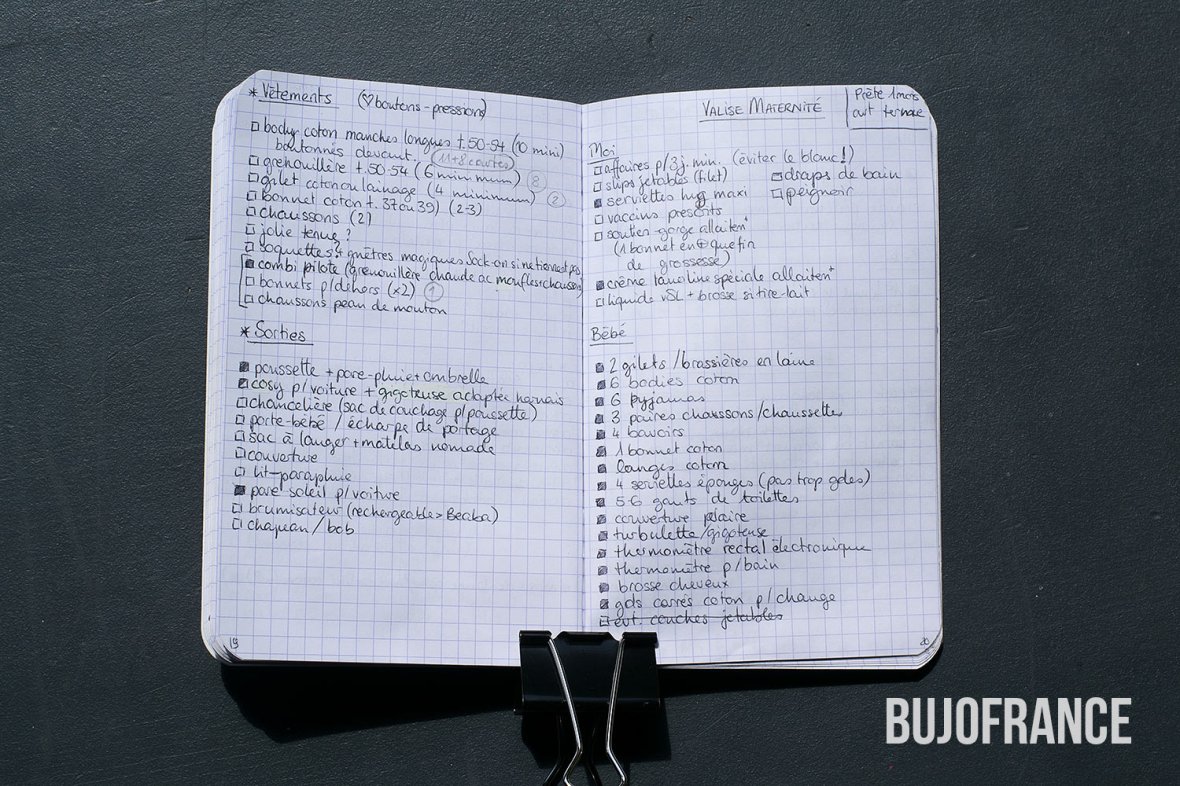 * Vêtements (♡ boutons-pression)
□ body coton manches longues t.50-54 (10 mini)
boutonnés devant. (11+8 courtes)
□ grenouillère t.50-54 (6 minimum) (8)
□ gilet coton ou lainage (4 minimum) (2)
□ bonnet coton t. 37 ou 39) (2-3)
□ chaussons (2)
□ jolie tenue ?
□ soquettes + guêtres magiques Sock-on si ne tiennent pas
■ combi pilote (grenouillère chaude ac moufles+chaussons)
□ bonnets p/dehors (x2) (1)
□ chaussons peau de mouton
* Sorties
■ poussette + pare-pluie + ombrelle
■ cosy p/voiture + gigoteuse adaptée harnais
□ chancelière (sac de couchage p/poussette)
□ porte-bébé / écharpe de portage
□ sac à langer + matelas nomade
□ couverture
□ lit-parapluie
■ pare soleil p/voiture
□ brumisateur (rechargeable > Beaba)
□ chapeau / bob
19
VALISE MATERNITÉ
Prête 1 mois
avt terme
Moi
□ affaires p/3j. min. (éviter le blanc!)
□ slips jetables (filet)
□ draps de bain
■ serviettes hyg maxi
□ peignoir
□ vaccins prescrits
□ soutien-gorge allaitem^t
(1 bonnet en ⊕ que fin
de grossesse)
■ crème lanoline spéciale allaitem^t
□ liquide VSL + brosse si tire-lait
Bébé
■ 2 gilets / brassières en laine
■ 6 bodies coton
■ 6 pyjamas
■ 3 paires chaussons / chaussettes
■ 4 bavoirs
■ 1 bonnet coton
■ langes coton
■ 4 serviettes éponges (pas trop gdes)
■ 5-6 gants de toilettes
■ couverture polaire
■ turbulette/gigoteuse
■ thermomètre rectal électronique
■ thermomètre p/bain
■ brosse cheveux
■ gds carrés coton p/change
□ évt. couches jetables
20
BUJOFRANCE